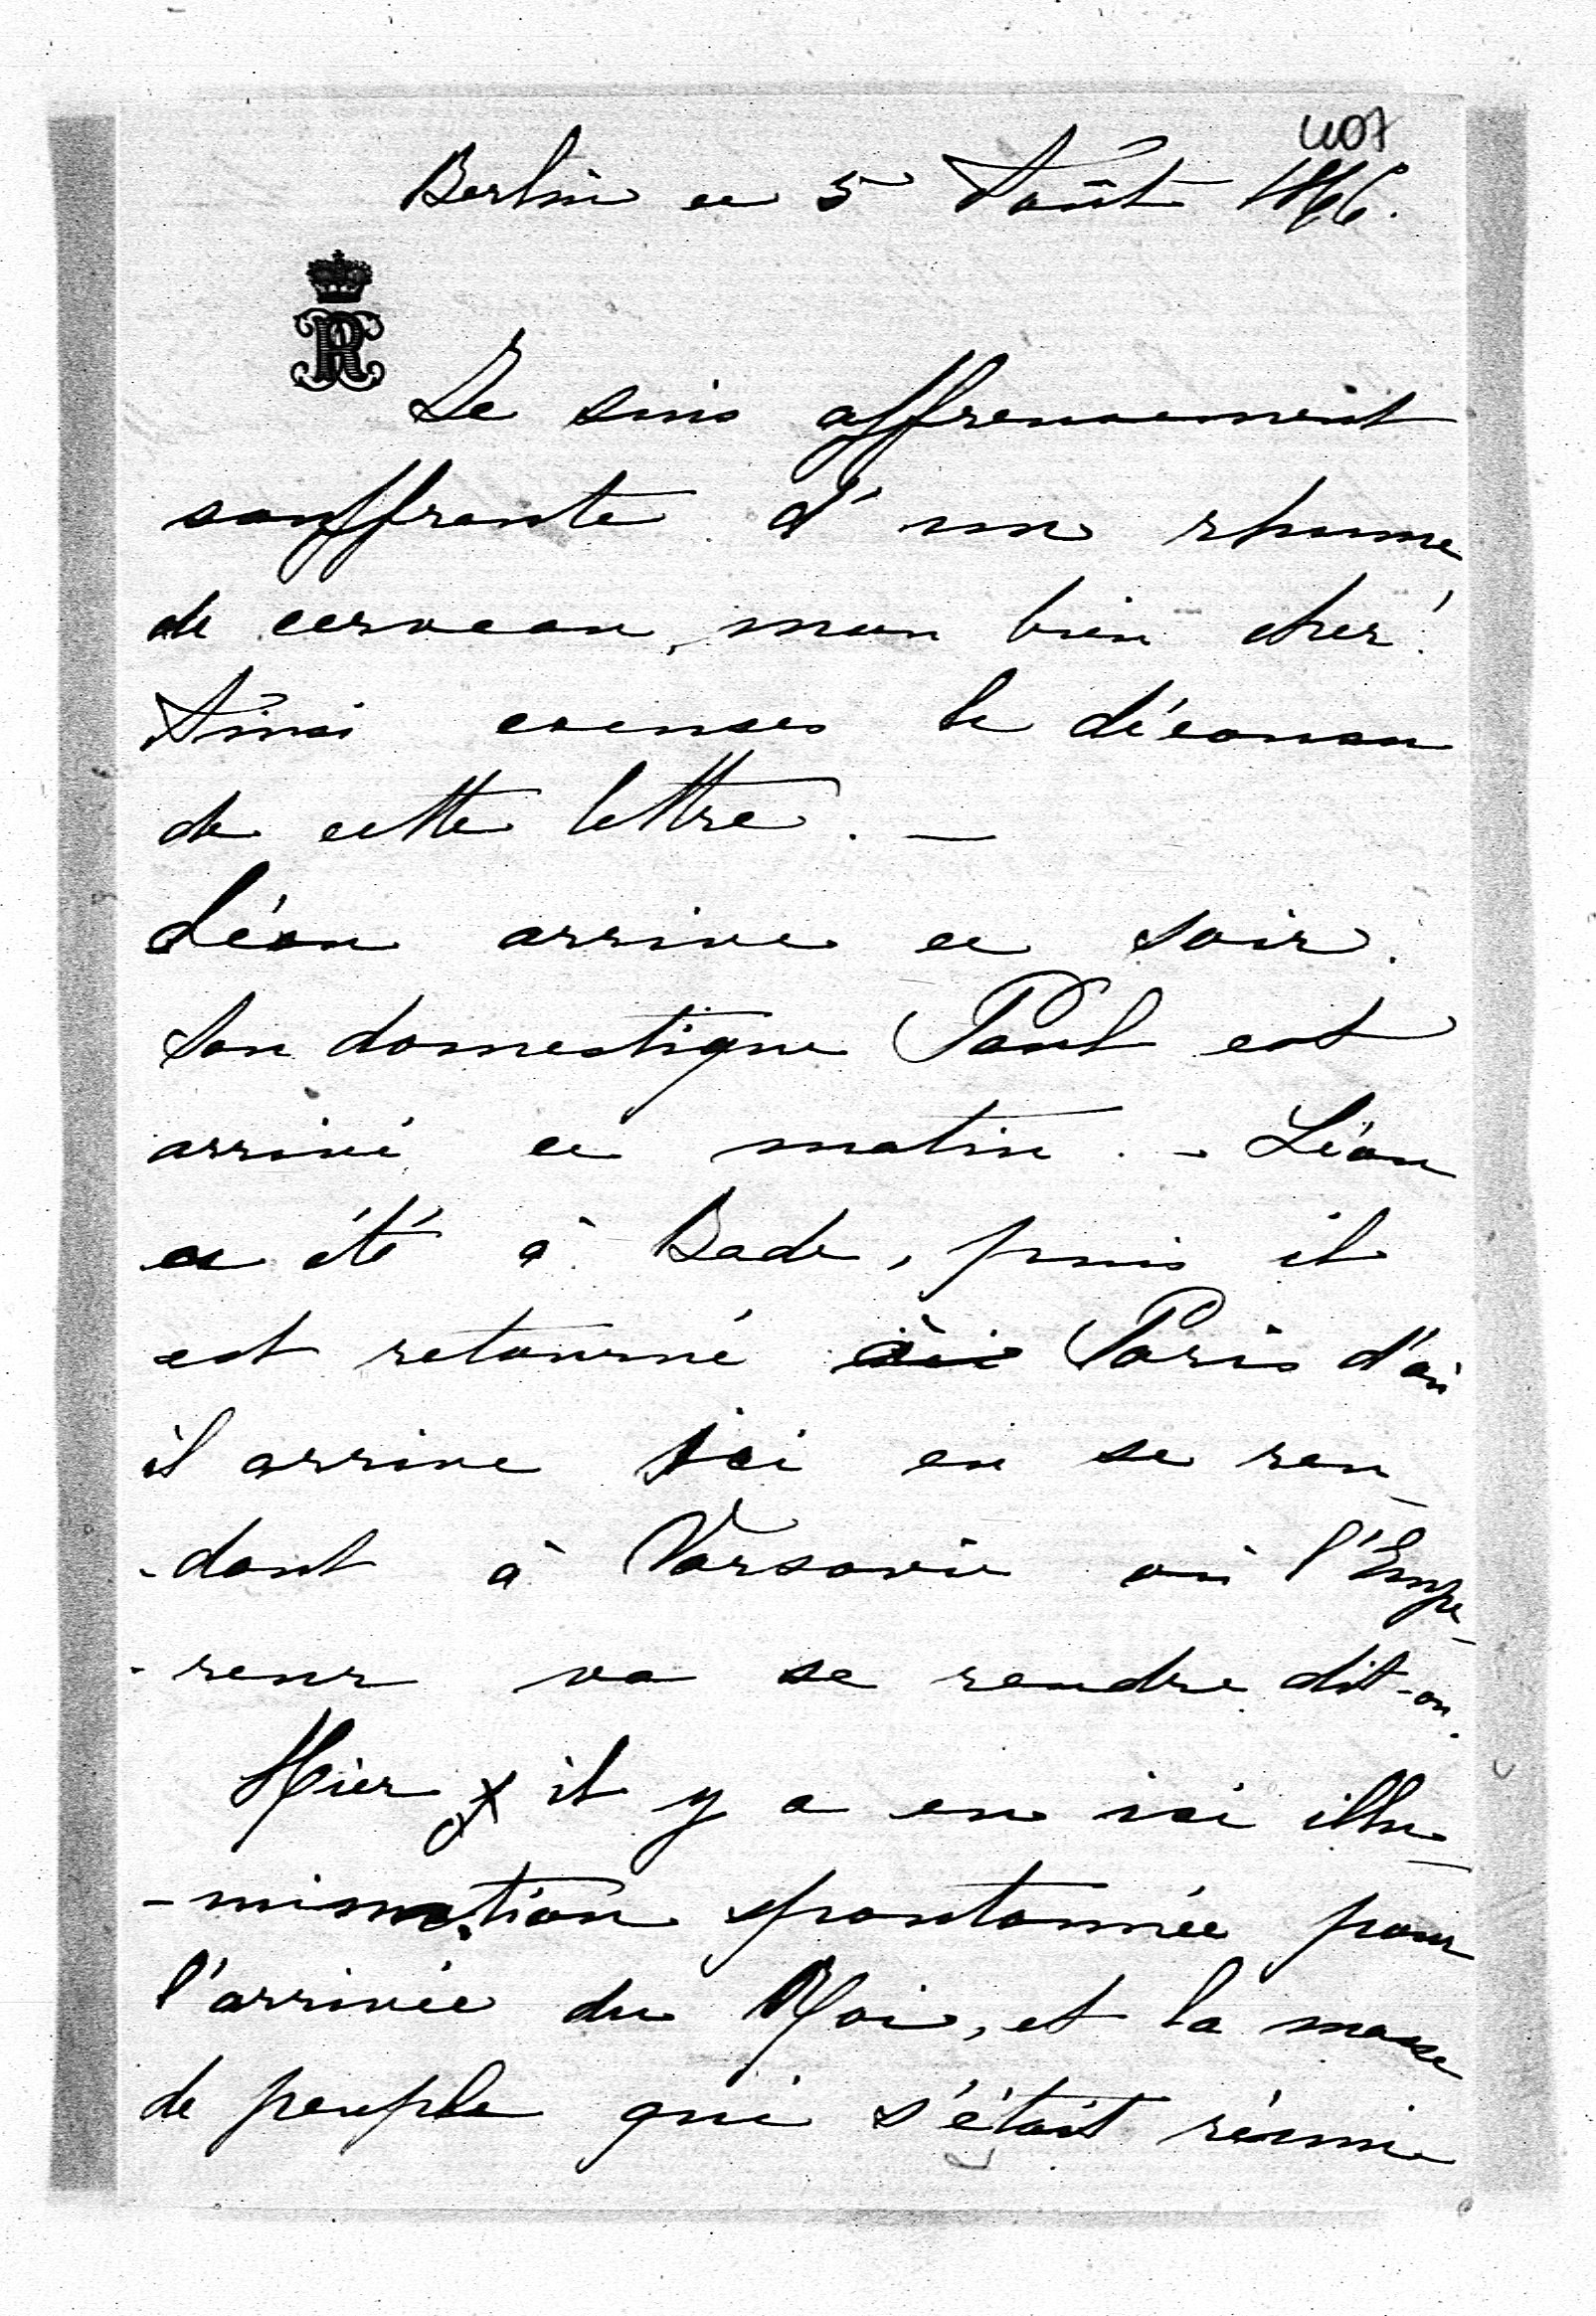 407
Berlin ce 5 Août 1866.
R
Je suis affreusement
souffrante d'un rhume
de cerveau, mon bien cher!
Ainsi excuses le décousu
de cette lettre. —
Léon arrive ce soir.
Son domestique Paul est
arrivé ce matin. - Léon
a été à Bade, puis il
est retourné à Paris d'où
il arrive ici en se ren-
-dant à Varsovie où l'Empe-
-reur va se rendre dit-on.
Hier il y a eu ici illu-
-mination spontanée pour
l'arrivée du Roi, et la masse
de peuple qui s'était réunie